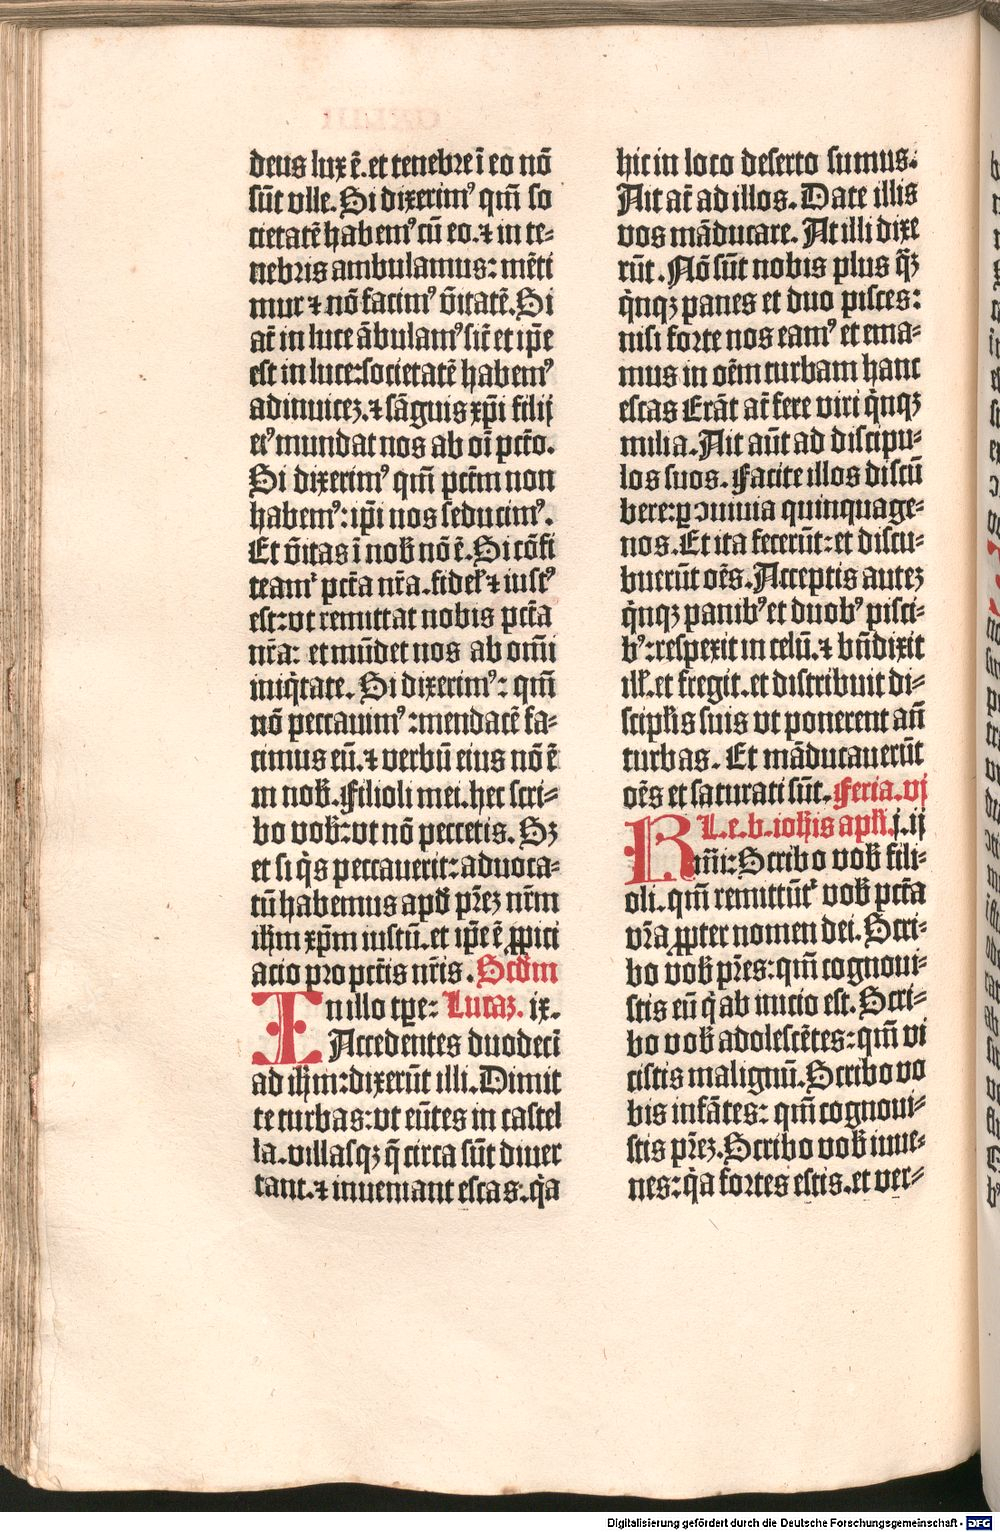 deus lux ē. et tenebre ī eo nō
sūt vlle. Si dixerimꝰ qm̄ so
cietatē habemꝰ cū eo. ⁊ in te⸗
nebris ambulamus: mēti
mur ⁊ nō facimꝰ v̄itatē. Si
at̄ in luce ābulamꝰ sic̄ et ip̄e
est in luce: societatē habemꝰ
adinuicez. ⁊ sāguis xp̄i filij
eiꝰ mundat nos ab oī pctō.
Si dixerimꝰ qm̄ pctm̄ non
habemꝰ: ip̄i nos seducimꝰ.
Et v̄itas ī nob̄ nō ē. Si cōfi
teamr̄ pctā nr̄a. fidel̄ ⁊ iustꝰ
est: vt remittat nobis pctā
nr̄a: et mūdet nos ab omi
iniq̄tate. Si dixerimꝰ: qm̄
nō peccauimꝰ: mendacē fa⸗
cimus eū. ⁊ verbū eius nō ē
in nob̄. Filioli mei. hec scri⸗
bo vob̄: vt nō peccetis. Sꝫ
et si q̄s peccauerit: aduoca⸗
tū habemus apd̄ pr̄ez nr̄m
ihm̄ xp̄m iustū. et ip̄e ē ꝓpici
acio pro pctīs nr̄is. Scd̄m
In illo tꝑe: Lucaz. ix.
Accedentes duodecī
ad ihm̄: dixerūt illi. Dimit
te turbas: vt eūtes in castel
la. villasqꝫ q̄ circa sūt diuer
tant. ⁊ inueniant escas. q̄a
hic in loco deserto sumus.
Ait at̄ ad illos. Date illis
vos māducare. At illi dixe
rūt. Nō sūt nobis plus q̄ꝫ
q̄nqꝫ panes et duo pisces:
nisi forte nos eamꝰ et ema⸗
mus in oēm turbam hanc
escas Erāt at̄ fere viri q̄nqꝫ
milia. Ait aūt ad discipu⸗
los suos. Facite illos discū
bere: ꝑ ↄuiuia quinquage⸗
nos. Et ita fecerūt: et discu⸗
buerūt oēs. Acceptis autez
q̄nqꝫ panibꝰ et duobꝰ pisci⸗
bꝰ: respexit in celū. ⁊ bn̄dixit
ill̄. et fregit. et distribuit di⸗
scipl̄is suis vt ponerent an̄
turbas. Et māducauerūt
oēs et saturati sūt. Feria. vj
L. e. b. ioh̄is apl̄i. j. ij
Rm̄i: Scribo vob̄ fili⸗
oli. qm̄ remittūtr̄ vob̄ pctā
vr̄a ꝓpter nomen dei. Scri⸗
bo vob̄ pr̄es: qm̄ cognoui⸗
stis eū q̄ ab inicio est. Scri⸗
bo vob̄ adolescētes: qm̄ vi
cistis malignū. Scribo vo
bis infātes: qm̄ cognoui⸗
stis pr̄ez. Scribo vob̄ iuue⸗
nes: q̄a fortes estis. et ver⸗
Digitalisierung gefördert durch die Deutsche Forschungsgemeinschaft - DFG